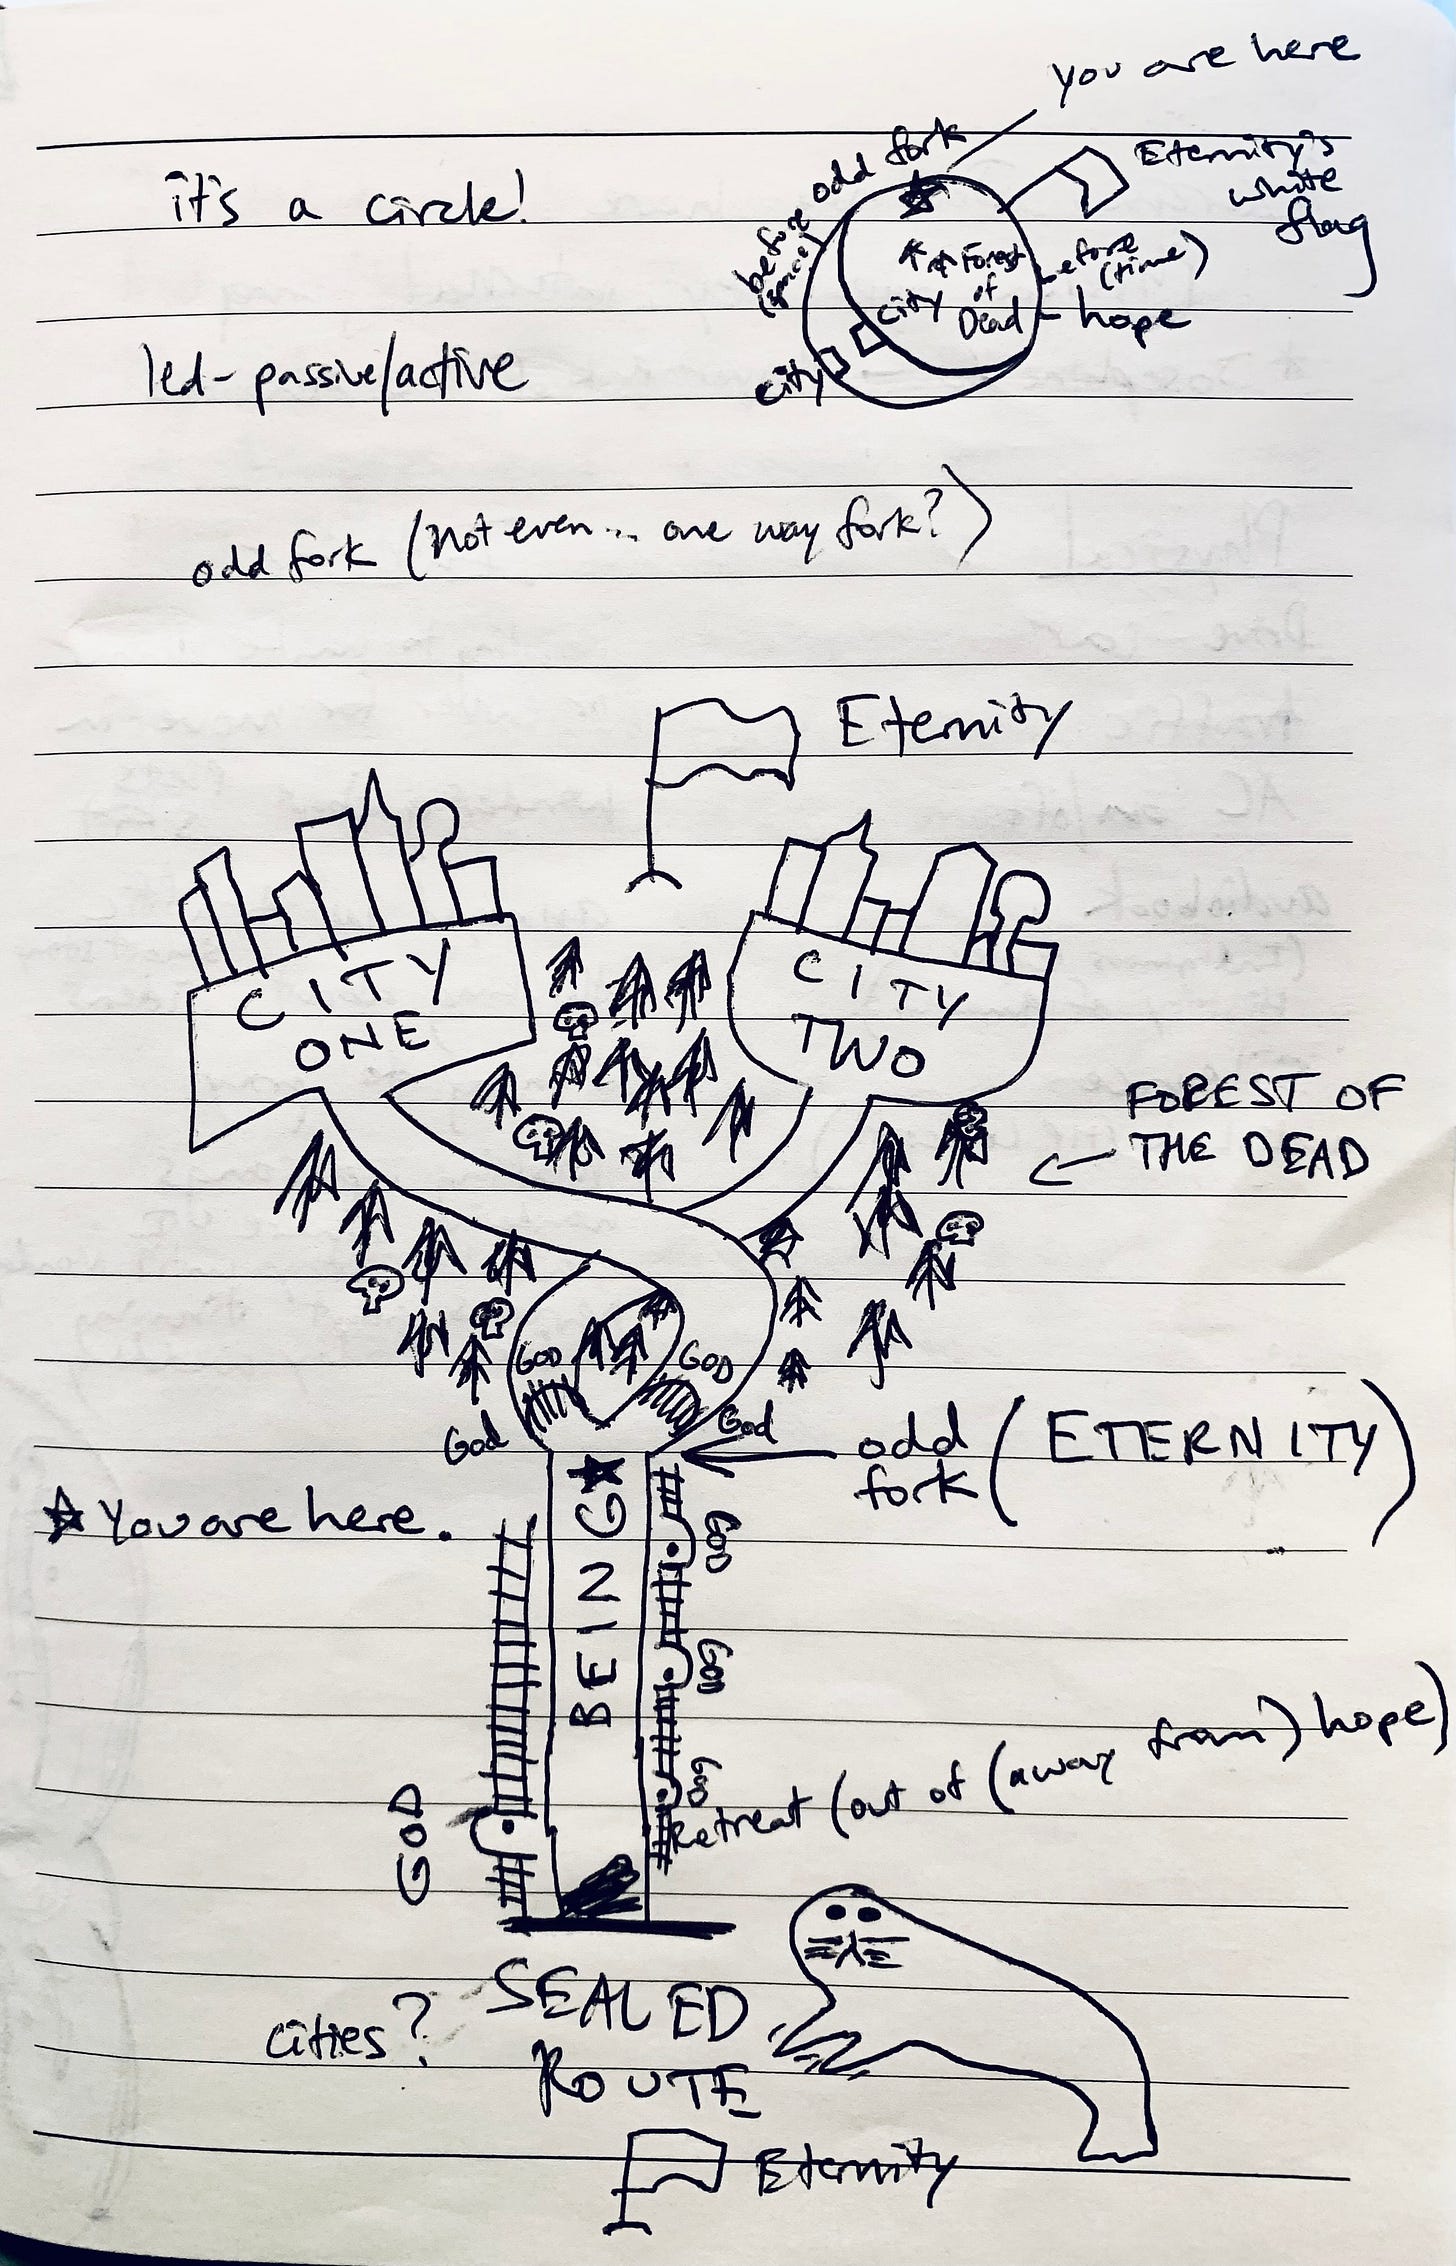 you are here
it's a circle!
odd fork
before
(space)
Eternity's
white
flag
Forest
of
Dead
before
(time)
hope
city
city
led - passive/active
odd fork (not even... one way fork?)
Eternity
CITY
ONE
CITY
TWO
FOREST OF
THE DEAD
GOD
GOD
God
God
odd
fork (ETERNITY)
☆ You are here.
BEING
GOD
GOD
GOD
GOD
Retreat (out of (away from) hope)
cities?
SEALED
ROUTE
Eternity